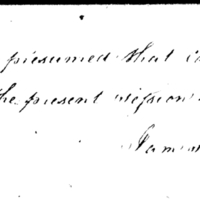 presumed that
the present session
I am